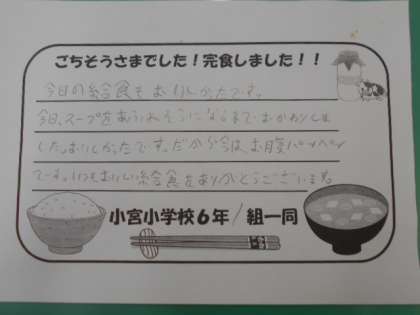 ごちそうさまでした！完食しました！！
今日の給食もおいしかったです。
今日、スープをあふれそうになるまでおかわりしま
した。おいしかったです。だから今は、お腹パンパン
です。いつもおいしい給食をありがとうございます。
小宮小学校６年/組一同